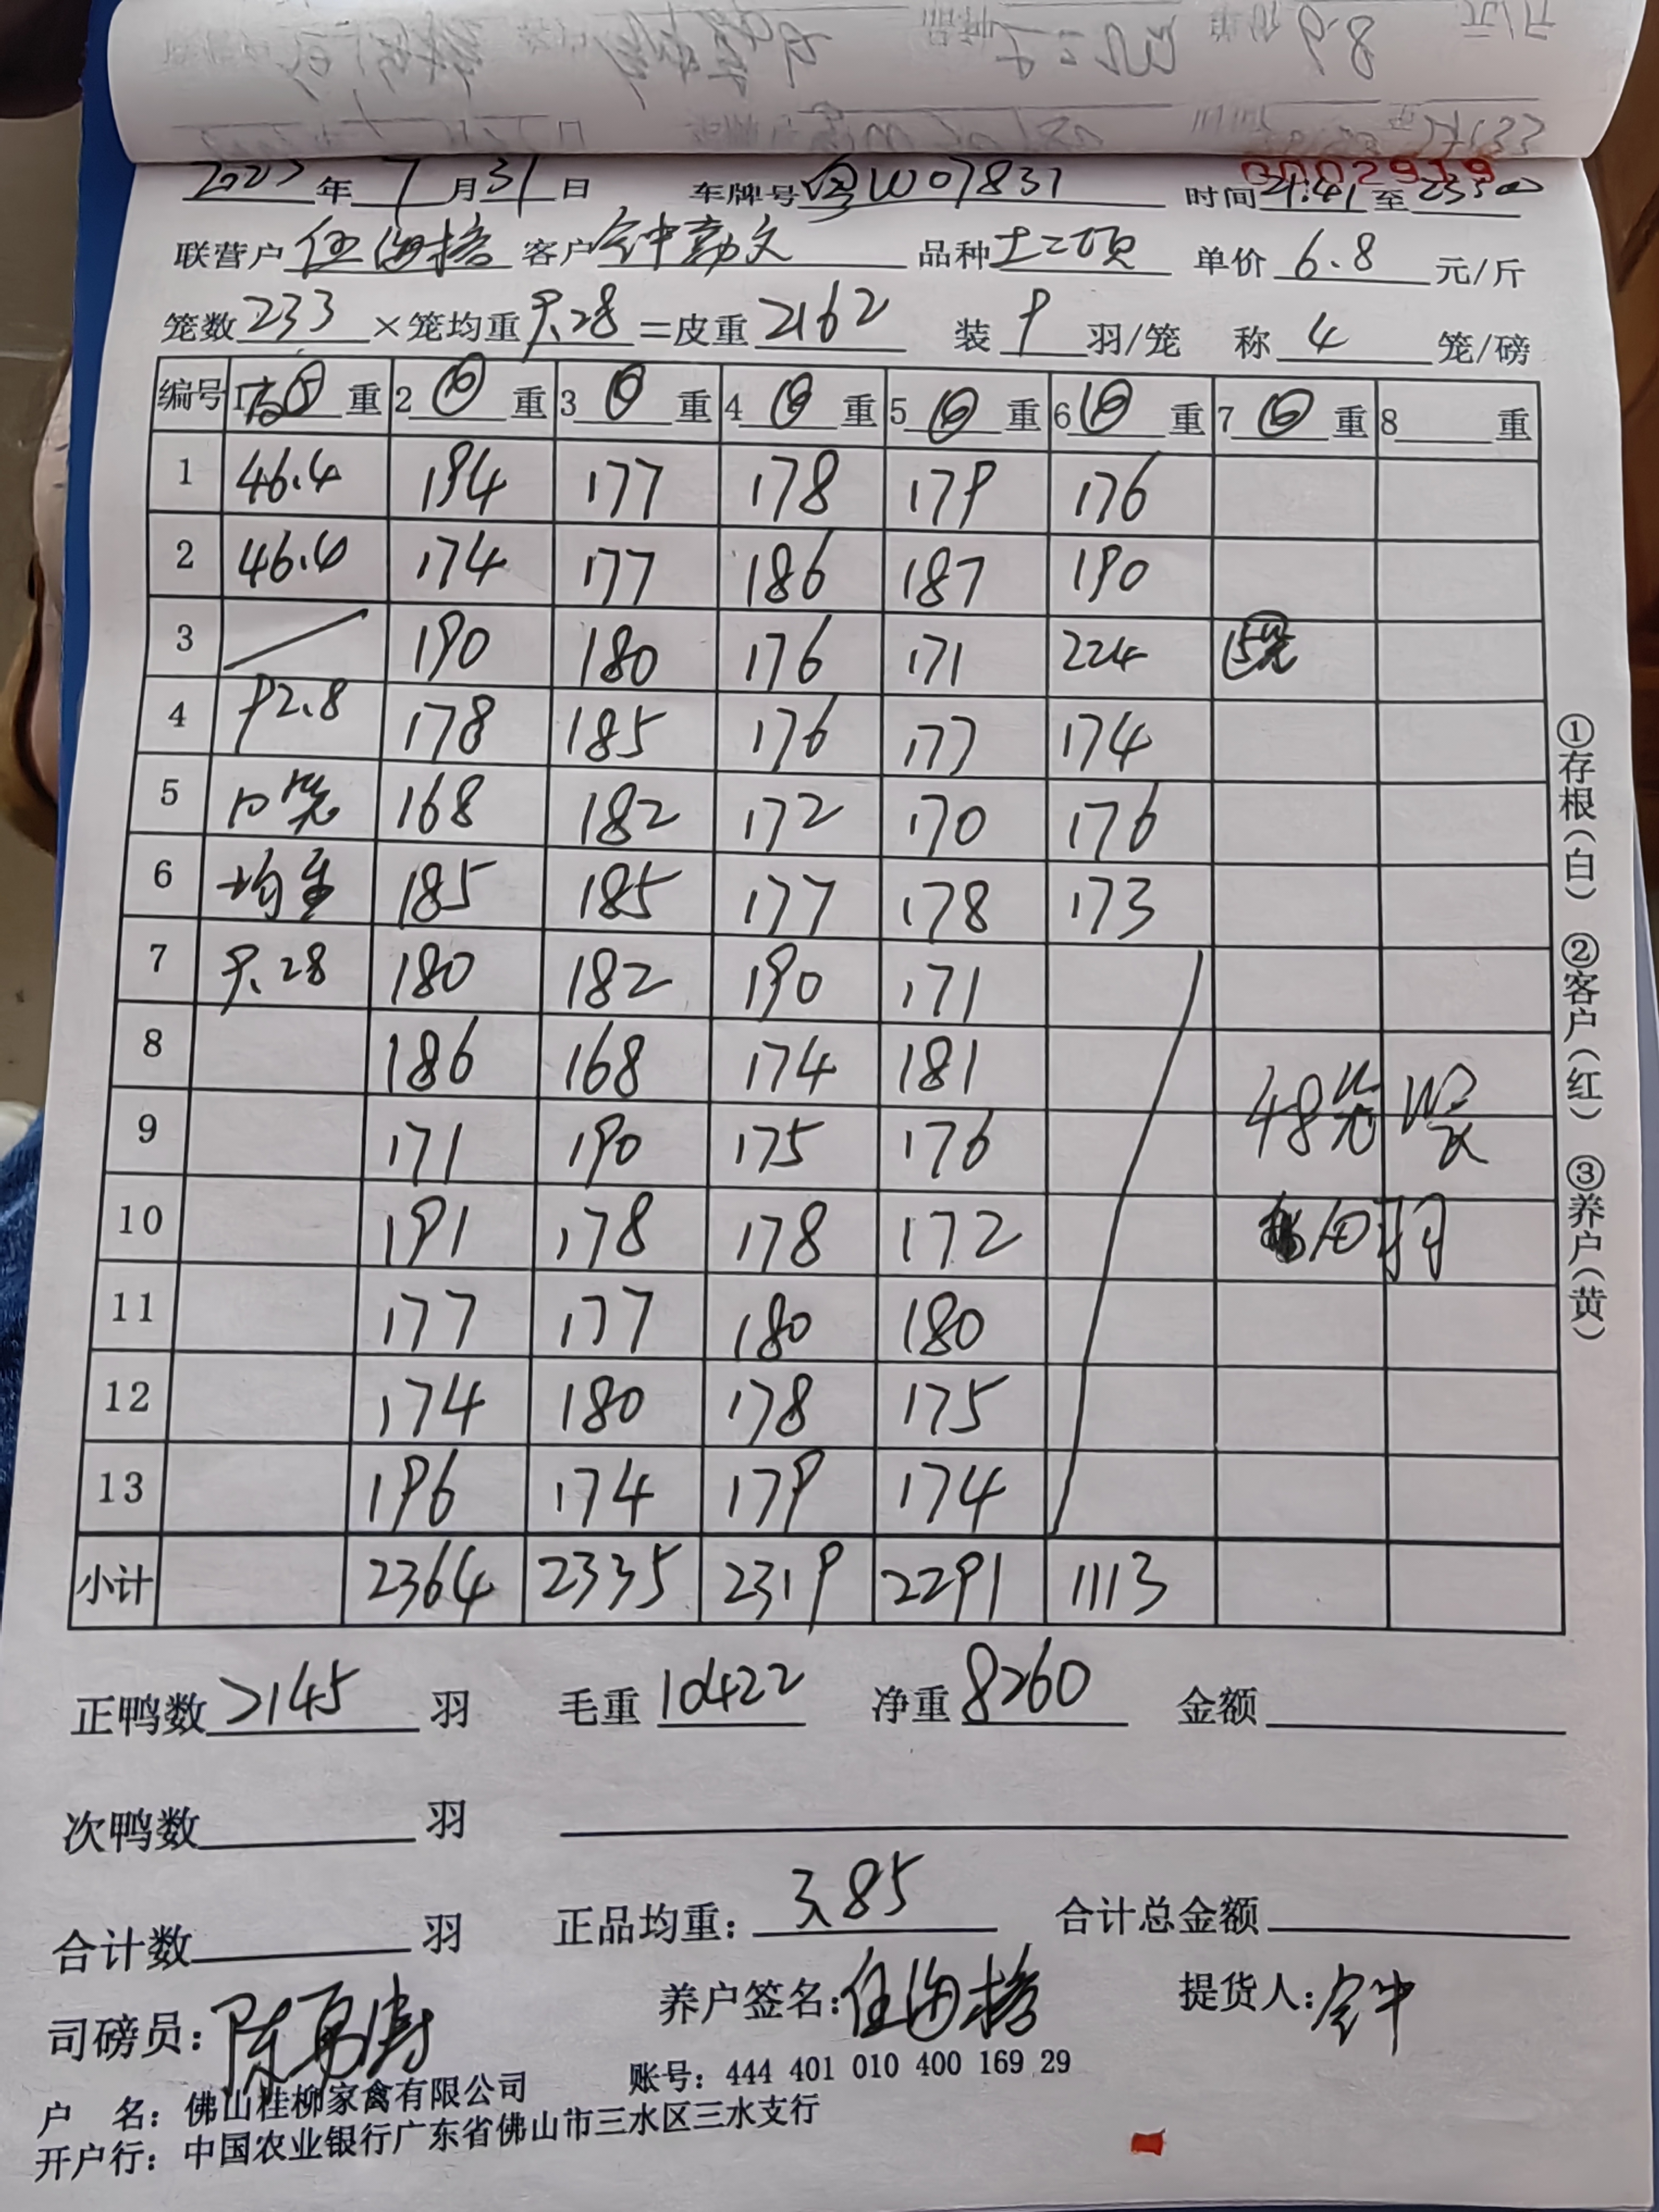 0002919
7月31日 车牌号粤W07831 时间21:41至23:00
联营户 客户钟勤文 品种 单价6.8元/斤
笼数233×笼均重9.28=皮重2162 装9羽/笼 称4笼/磅
编号 1 重 2 重 3 重 4 重 5 重 6 重 7 重 8 重
1 46.4 194 177 178 179 176
2 46.4 174 177 186 187 190
3 190 180 176 171 224 5笼
4 92.8 178 185 176 177 174
5 10笼 168 182 172 170 176
6 均重 185 185 177 178 173
7 9.28 180 182 190 171
8 186 168 174 181
9 171 190 175 176 48笼
10 191 178 178 172 10羽
11 177 177 180 180
12 174 180 178 175
13 196 174 179 174
小计 2364 2335 2319 2291 1113
①存根(白) ②客户(红) ③养户(黄)
正鸭数2145羽 毛重10422 净重8260 金额
次鸭数 羽
合计数 羽 正品均重：3.85 合计总金额
司磅员： 养户签名： 提货人：钟
户 名：佛山桂柳家禽有限公司 账号：444 401 010 400 169 29
开户行：中国农业银行广东省佛山市三水区三水支行